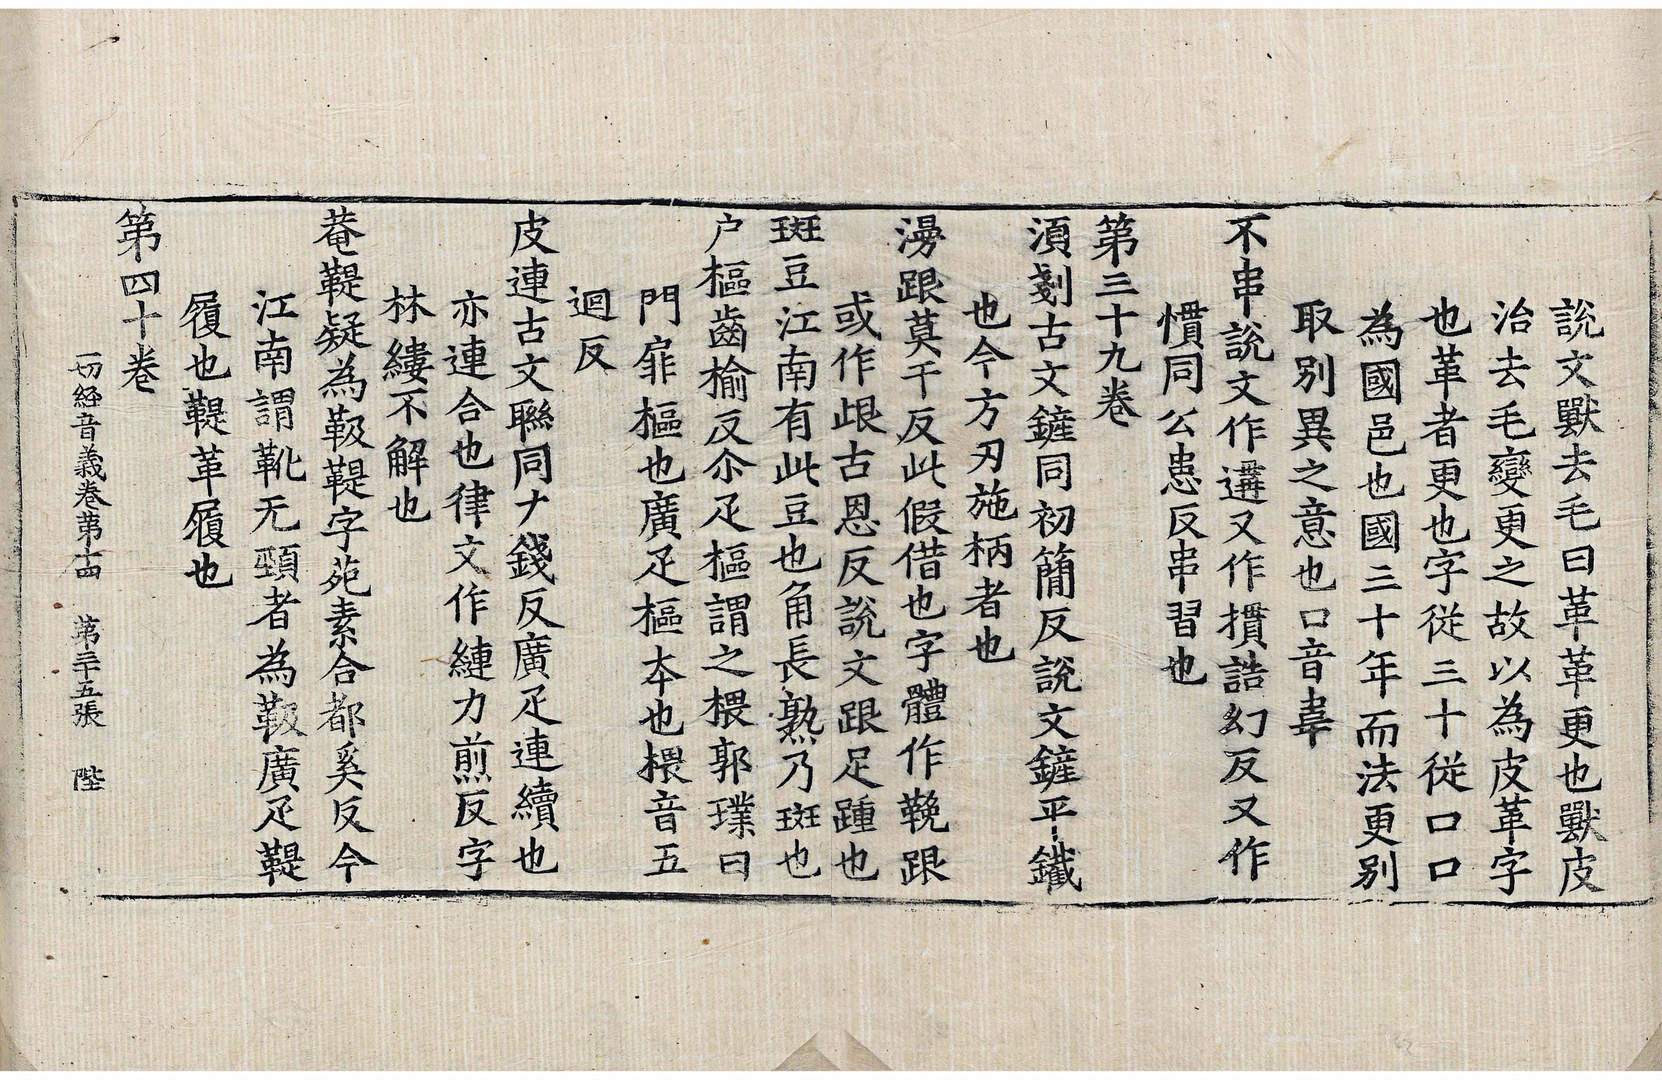 說文獸去毛曰革革更也獸皮
治去毛變更之故以為皮革字
也革者更也字從三十從口口
為國邑也國三十年而法更別
取別異之意也口音韋
不串說文作遦又作摜誥幻反又作
慣同公患反串習也
第三十九卷
湏剗古文鏟同初簡反說文鏟平鐵
也今方刃施柄者也
漫跟莫干反此假借也字體作鞔跟
或作䟘古恩反說文跟足踵也
斑豆江南有此豆也角長熟乃斑也
户樞齒榆反尒疋樞謂之椳郭璞曰
門扉樞也廣疋樞夲也椳音五
迴反
皮連古文聯同𠂇錢反廣疋連續也
亦連合也律文作縺力煎反字
林縷不解也
菴鞮疑為靸鞮字苑素合都奚反今
江南謂靴无頸者為靸廣疋鞮
履也鞮革履也
第四十卷
一切経音義卷第十四 第三十五張 陛